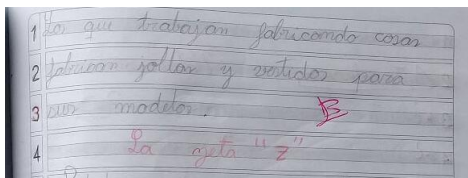 1 Los que trabajan fabricando cosas
2 fabrican jollas y vestidos para
3 sus modelos. B
4 La geta "z"